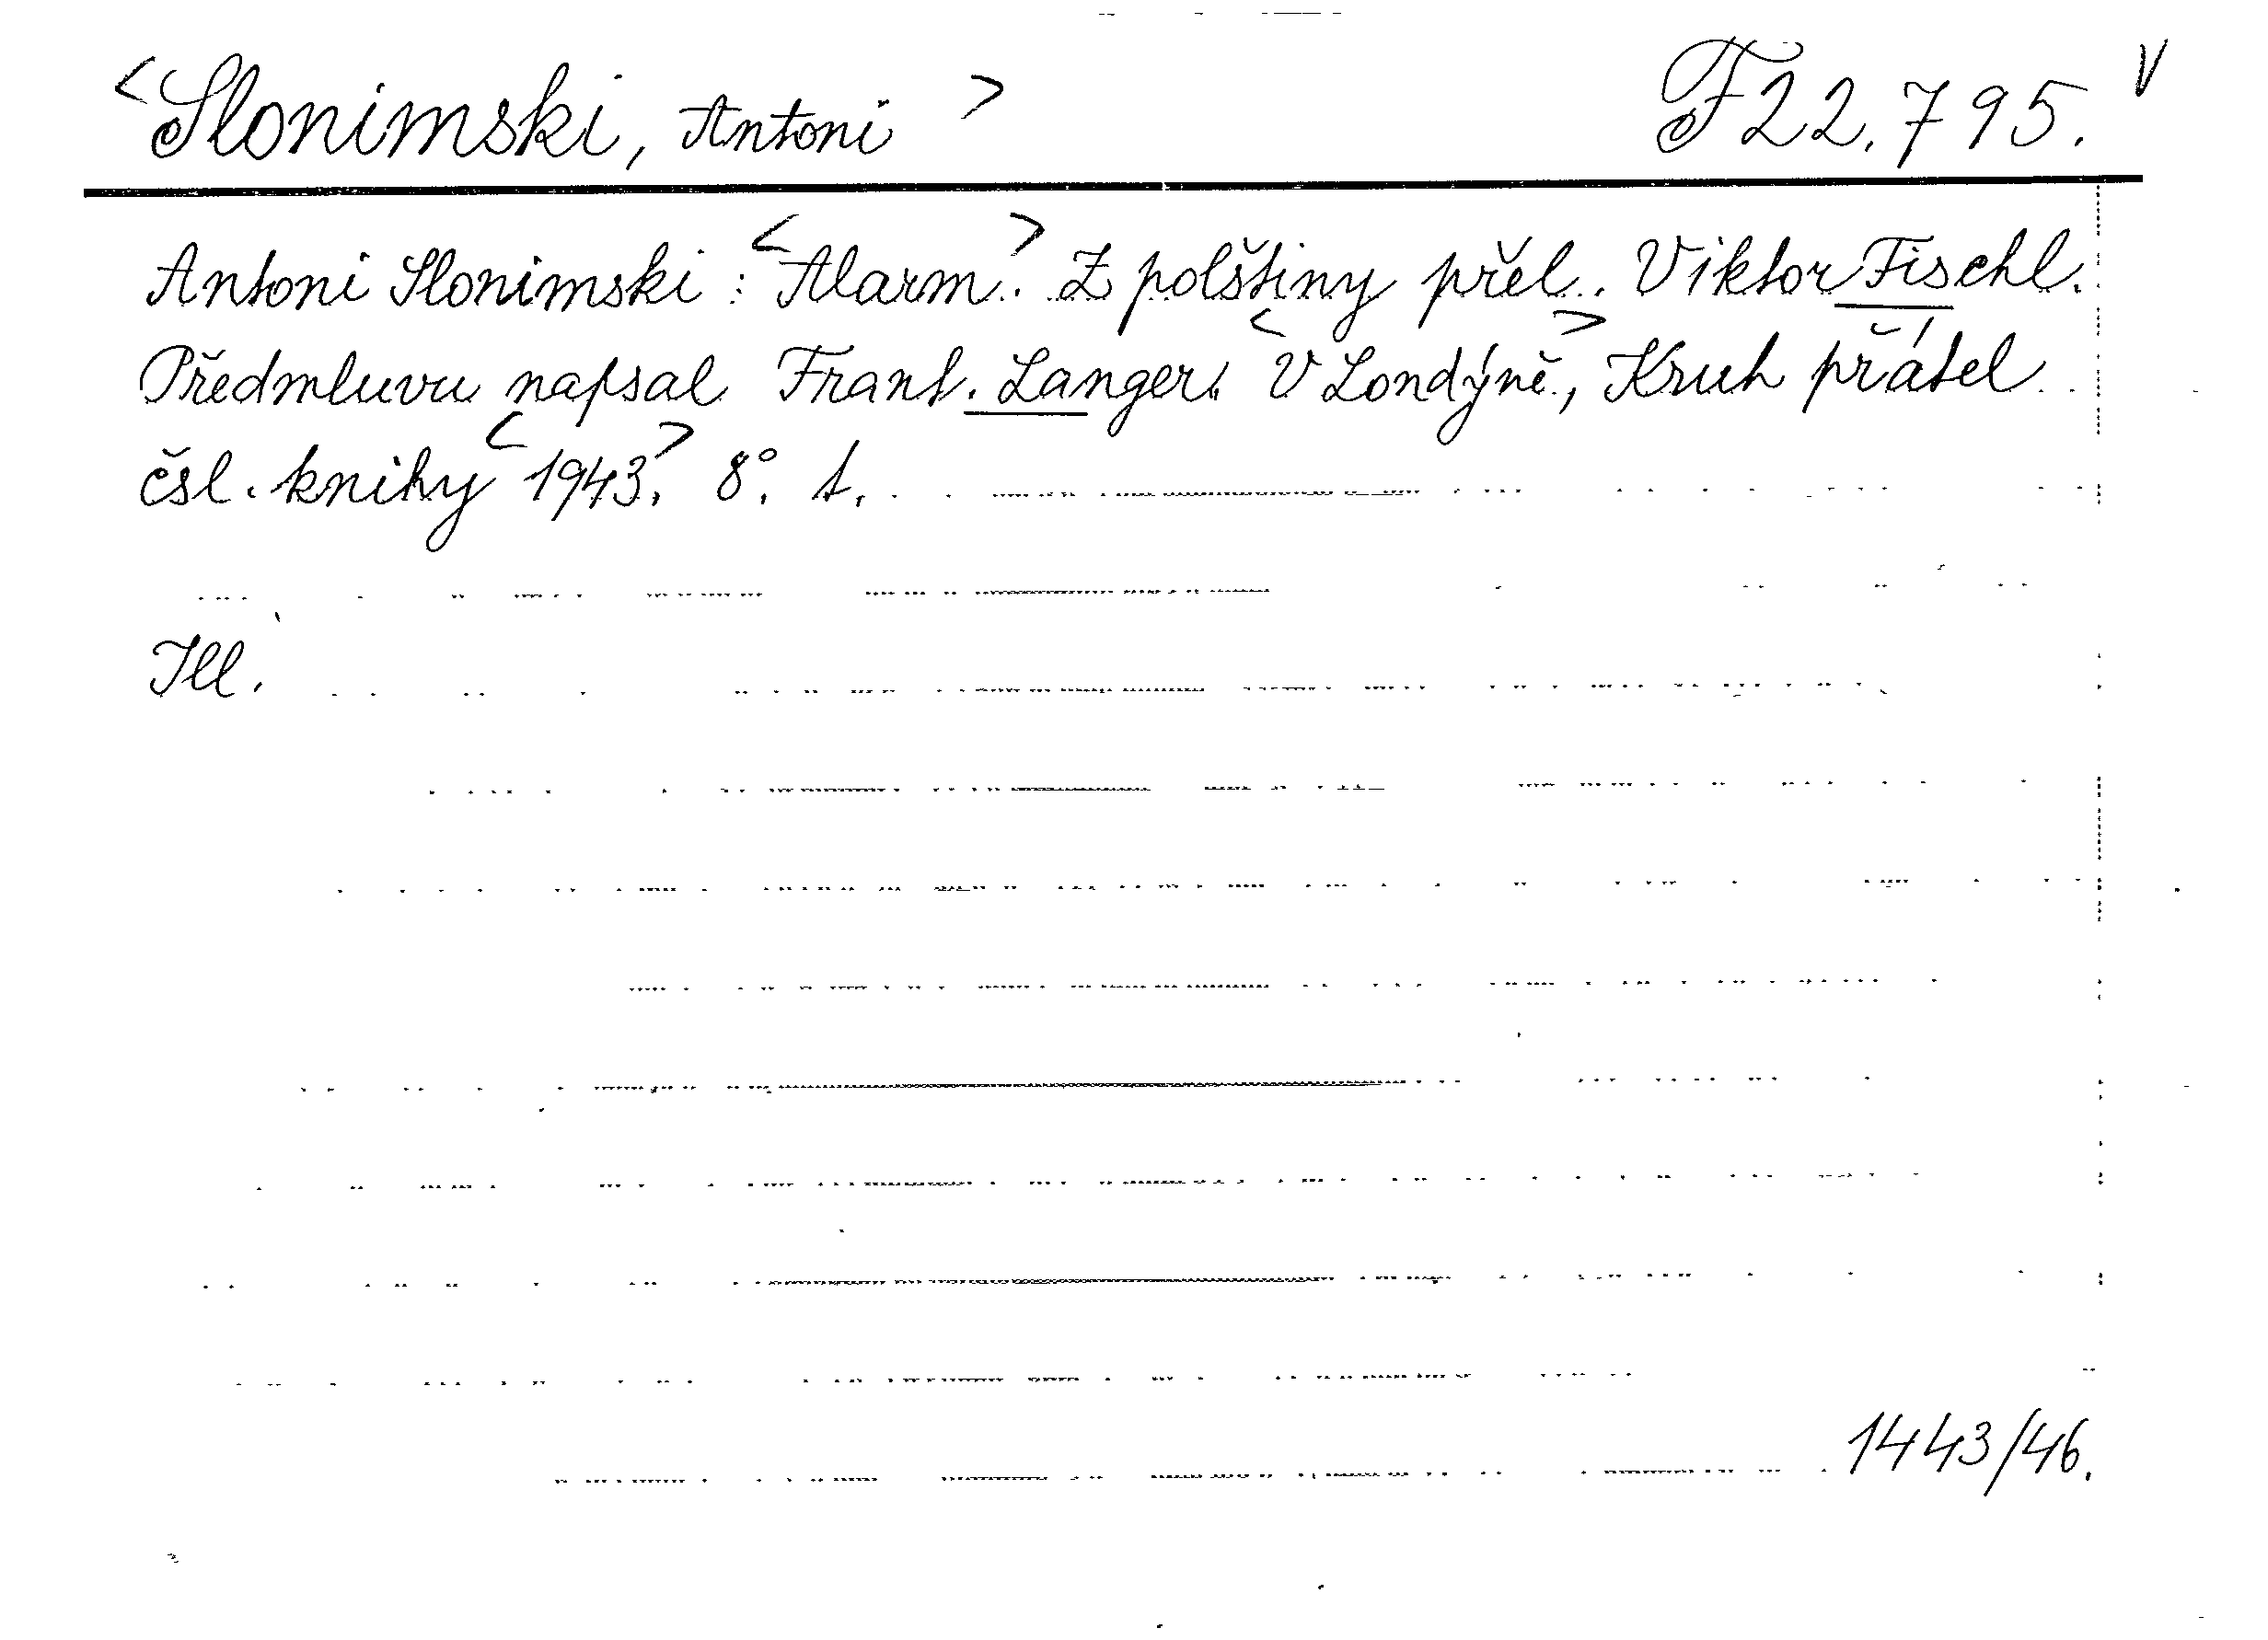 <Slonimski, Antoni> F 22.795. V
Antoni Slonimski: <Alarm.> Z polštiny přel. Viktor Fischl.
Předmluvu napsal Frant. Langer. <V Londýně,> Kruh přátel
čsl. knihy <1943.> 8°. t.
Ill.
1443/46.